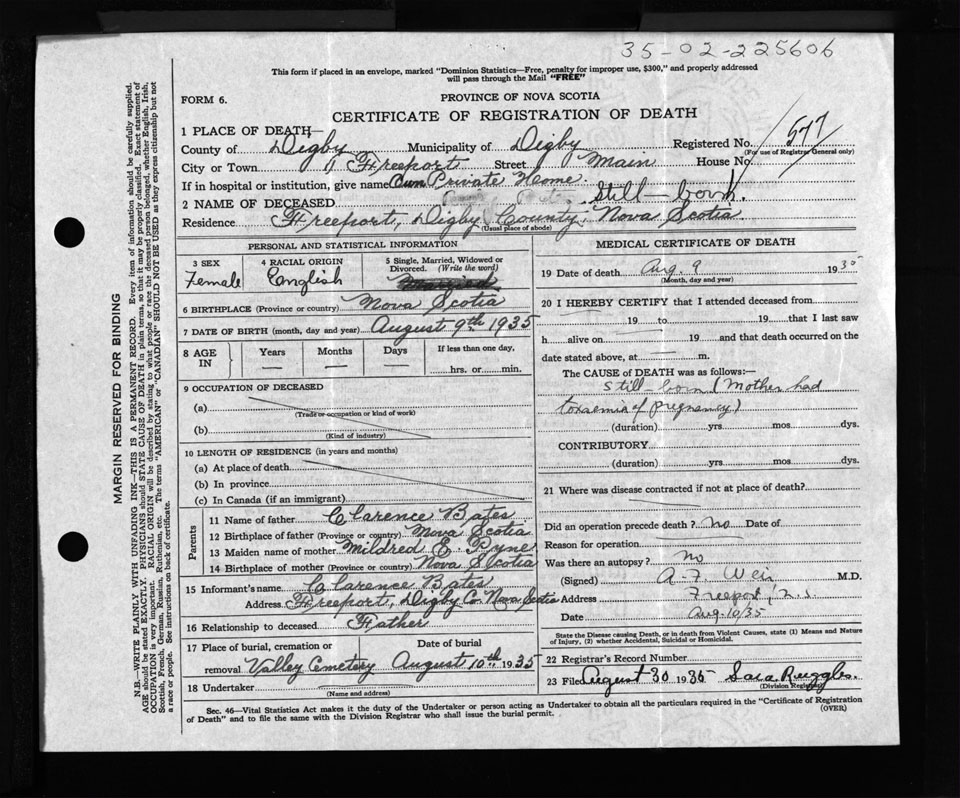 35-02-225606
This form if placed in an envelope, marked "Dominion Statistics—Free, penalty for improper use, $300," and properly addressed
will pass through the Mail "FREE"
FORM 6.
PROVINCE OF NOVA SCOTIA
CERTIFICATE OF REGISTRATION OF DEATH
1 PLACE OF DEATH—
County of Digby Municipality of Digby Registered No. 577
(For use of Registrar General only)
City or Town Freeport Street Main House No.
If in hospital or institution, give name Own Private Home.
2 NAME OF DECEASED Still-born.
Residence Freeport, Digby County, Nova Scotia
(Usual place of abode)
PERSONAL AND STATISTICAL INFORMATION
3 SEX
Female
4 RACIAL ORIGIN
English
5 Single, Married, Widowed or
Divorced. (Write the word)
6 BIRTHPLACE (Province or country) Nova Scotia
7 DATE OF BIRTH (month, day and year) August 9th 1935
8 AGE
IN
Years
—
Months
—
Days
—
If less than one day,
hrs. or min.
9 OCCUPATION OF DECEASED
(a)
(Trade or occupation or kind of work)
(b)
(Kind of industry)
10 LENGTH OF RESIDENCE (in years and months)
(a) At place of death
(b) In province
(c) In Canada (if an immigrant)
Parents
11 Name of father Clarence Bates
12 Birthplace of father (Province or country) Nova Scotia
13 Maiden name of mother Mildred E. Pyne
14 Birthplace of mother (Province or country) Nova Scotia
15 Informant's name Clarence Bates
Address Freeport, Digby Co Nova Scotia
16 Relationship to deceased Father
17 Place of burial, cremation or
removal Valley Cemetery
Date of burial
August 10th 1935
18 Undertaker
(Name and address)
MEDICAL CERTIFICATE OF DEATH
19 Date of death Aug. 9 1935
(Month, day and year)
20 I HEREBY CERTIFY that I attended deceased from
19 to 19 that I last saw
h alive on 19 and that death occurred on the
date stated above, at — m.
The CAUSE OF DEATH was as follows:—
Still-born (Mother had
toxaemia of pregnancy)
(duration) yrs. mos. dys.
CONTRIBUTORY
(duration) yrs. mos. dys.
21 Where was disease contracted if not at place of death?
Did an operation precede death? No Date of
Reason for operation
Was there an autopsy? No
(Signed) A. F. Weir M.D.
Address Freeport, N.S.
Date Aug. 10/35
State the Disease causing Death, or in death from Violent Causes, state (1) Means and Nature
of Injury, (2) whether Accidental, Suicidal or Homicidal.
22 Registrar's Record Number
23 Filed August 30 1935 Sara Ruggles.
(Division Registrar)
Sec. 46—Vital Statistics Act makes it the duty of the Undertaker or person acting as Undertaker to obtain all the particulars required in the "Certificate of Registration
of Death" and to file the same with the Division Registrar who shall issue the burial permit.
(OVER)
MARGIN RESERVED FOR BINDING
N.B.—WRITE PLAINLY WITH UNFADING INK—THIS IS A PERMANENT RECORD. Every item of information should be carefully supplied.
AGE should be stated EXACTLY. PHYSICIANS should STATE CAUSE OF DEATH in plain terms, so that it may be properly classified. Exact statement of
OCCUPATION is very important. RACIAL ORIGIN will be described by stating to what people or race the deceased person belonged, whether English, Irish,
Scottish, French, German, Russian, Ruthenian, etc. The terms "AMERICAN" or "CANADIAN" SHOULD NOT BE USED as they express citizenship but not
a race or people. See instructions on back of certificate.